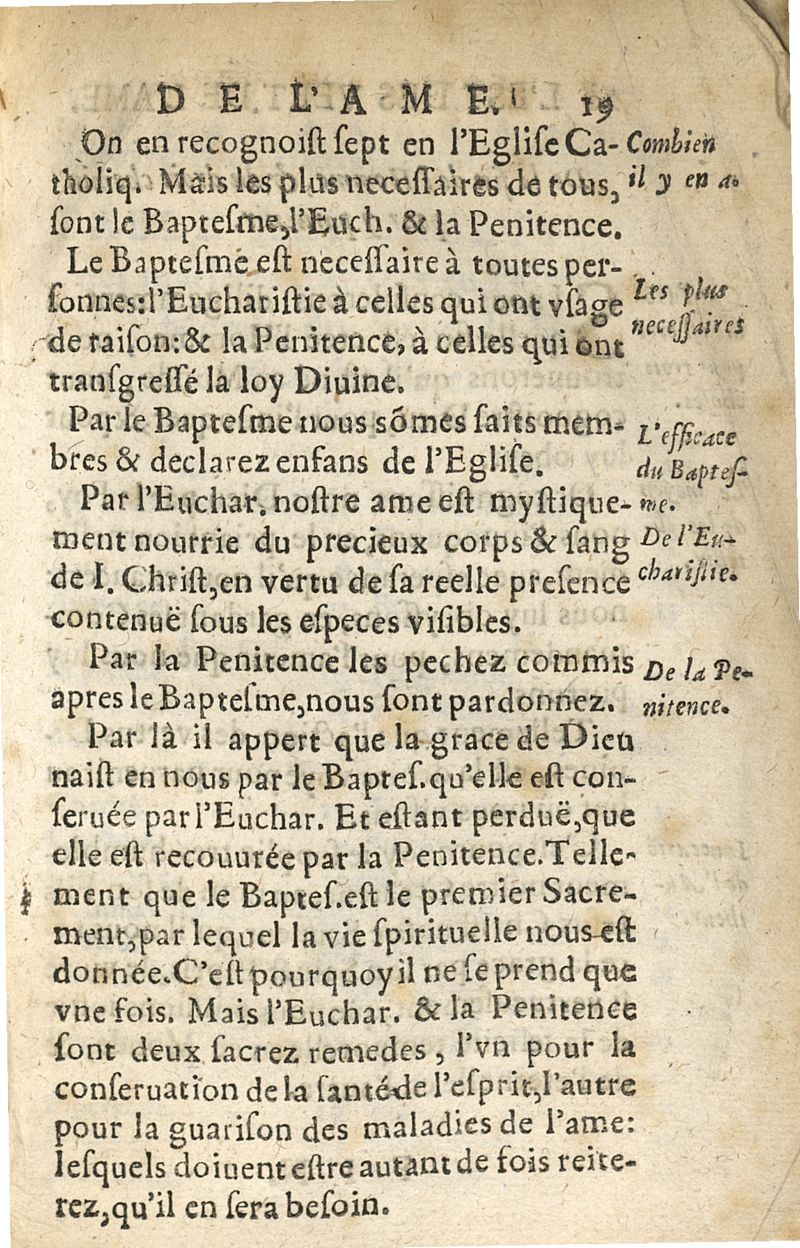 DE L'AME. 19
On en recognoiſt ſept en l'Egliſe Ca-
tholiq. Mais les plus neceſſaires de tous,
ſont le Bapteſme, l'Euch. & la Penitence.
Le Bapteſme eſt neceſſaire à toutes per-
ſonnes: l'Euchariſtie à celles qui ont vſage
de raiſon: & la Penitence, à celles qui ont
tranſgreſſé la loy Diuine.
Par le Bapteſme nous sõmes faits mem-
bres & declarez enfans de l'Egliſe.
Par l'Euchar. noſtre ame eſt myſtique-
ment nourrie du precieux corps & ſang
de I. Chriſt, en vertu de ſa reelle preſence
contenuë ſous les eſpeces viſibles.
Par la Penitence les pechez commis
apres le Bapteſme, nous ſont pardonnez.
Par là il appert que la grace de Dieu
naiſt en nous par le Bapteſ. qu'elle eſt con-
ſeruée par l'Euchar. Et eſtant perduë, que
elle eſt recouurée par la Penitence. Telle-
ment que le Bapteſ. eſt le premier Sacre-
ment, par lequel la vie ſpirituelle nous eſt
donnée. C'eſt pourquoy il ne ſe prend que
vne fois. Mais l'Euchar. & la Penitence
ſont deux ſacrez remedes, l'vn pour la
conſeruation de la ſanté de l'eſprit, l'autre
pour la guariſon des maladies de l'ame:
leſquels doiuent eſtre autant de fois reite-
rez, qu'il en ſera beſoin.
Combien
il y en a.
Les plus
neceſſaires
L'efficace
du Bapteſ-
me.
De l'Eu-
chariſtie.
De la Pe-
nitence.